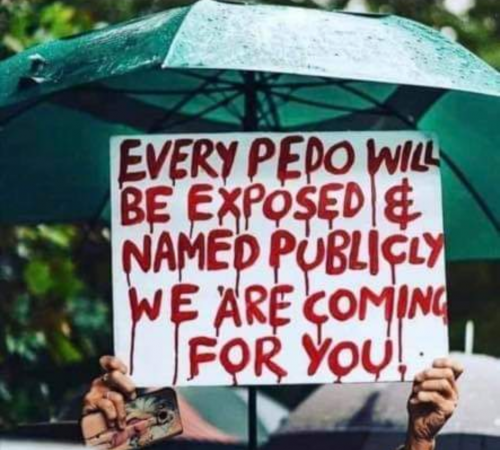 EVERY PEDO WILL
BE EXPOSED &
NAMED PUBLICLY
WE ARE COMING
FOR YOU!